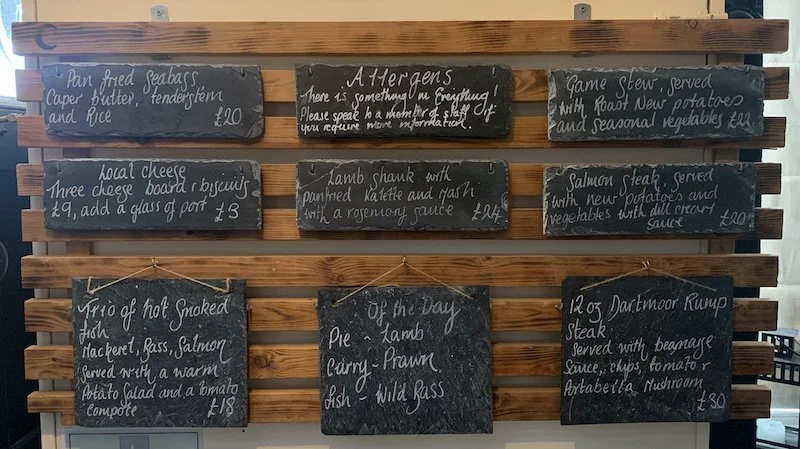 Pan fried Seabass
Caper butter, tenderstem
and Rice £20
Allergens
There is something in Everything!
Please speak to a member of staff if
you require more information.
Game Stew, served
with Roast New potatoes
and seasonal vegetables £22
Local cheese
Three cheese board & biscuits
£9, add a glass of port £3
Lamb shank with
panfried Kalette and Mash
with a rosemary sauce £24
Salmon Steak, Served
with new potatoes and
vegetables with dill cream
sauce £20
Trio of hot Smoked
fish
Mackerel, Bass, Salmon
Served with a warm
Potato Salad and a tomato
compote £18
Of the Day
Pie - Lamb
Curry - Prawn
fish - Wild Bass
12 oz Dartmoor Rump
Steak
Served with bearnaise
Sauce, chips, tomato &
Portabella Mushroom
£30